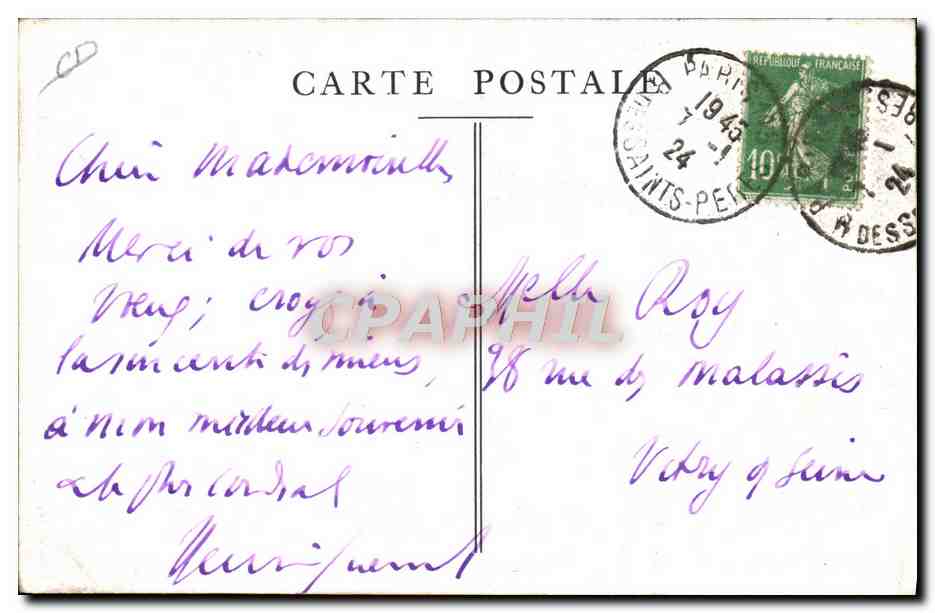 CD
CARTE POSTALE
RÉPUBLIQUE FRANÇAISE
10
PARIS
1945
7 - 1
24
R. DES SAINTS-PER
24
R DES S
Chère Mademoiselle
Merci de vos
vœux; croyez à
la sincérité des miens,
à mon meilleur souvenir
le plus cordial
Melle Roy
98 rue des Malassis
Vitry s/ Seine
CPAPHIL